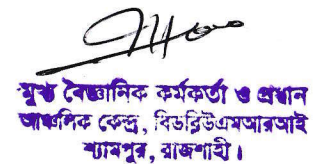 মুখ্য বৈজ্ঞানিক কর্মকর্তা ও প্রধান
আঞ্চলিক কেন্দ্র, বিডব্লিউএমআরআই
শ্যামপুর, রাজশাহী।